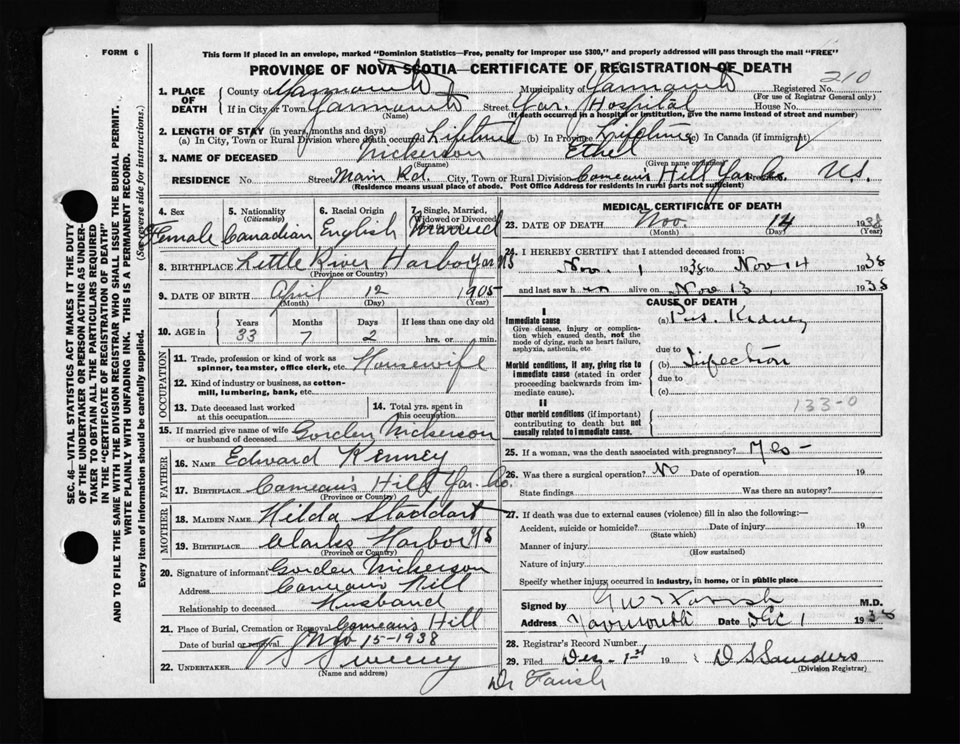 FORM 6
This form if placed in an envelope, marked "Dominion Statistics—Free, penalty for improper use $300," and properly addressed will pass through the mail "FREE"
PROVINCE OF NOVA SCOTIA—CERTIFICATE OF REGISTRATION OF DEATH
210
1. PLACE OF DEATH
County of Yarmouth Municipality of Yarmouth Registered No.
(For use of Registrar General only)
If in City or Town Yarmouth Street Yar. Hospital House No.
(Name) (If death occurred in a hospital or institution, give the name instead of street and number)
2. LENGTH OF STAY (in years, months and days)
(a) In City, Town or Rural Division where death occurred Lifetime (b) In Province Lifetime (c) In Canada (if immigrant)
3. NAME OF DECEASED Nickerson Ethel
(Surname) (Given name or names)
RESIDENCE No. Street Main Rd. City, Town or Rural Division Comeau's Hill Yar. Co. N.S.
(Residence means usual place of abode. Post Office Address for residents in rural parts not sufficient)
4. Sex
Female
5. Nationality (Citizenship)
Canadian
6. Racial Origin
English
7. Single, Married, Widowed or Divorced
Married
8. BIRTHPLACE Little River Harbor Yar NS
(Province or Country)
9. DATE OF BIRTH April 12 1905
(Month) (Day) (Year)
10. AGE in
Years Months Days If less than one day old
33 7 2 hrs. or min.
OCCUPATION
11. Trade, profession or kind of work as spinner, teamster, office clerk, etc. Housewife
12. Kind of industry or business, as cotton-mill, lumbering, bank, etc.
13. Date deceased last worked at this occupation.
14. Total yrs. spent in this occupation.
15. If married give name of wife or husband of deceased Gorden Nickerson
FATHER
16. NAME Edward Kenney
17. BIRTHPLACE Comeau's Hill Yar. Co.
(Province or Country)
MOTHER
18. MAIDEN NAME Hilda Stoddart
19. BIRTHPLACE Clarks Harbor NS
(Province or Country)
20. Signature of informant Gorden Nickerson
Address Comeau's Hill
Relationship to deceased Husband
21. Place of Burial, Cremation or Removal Comeau's Hill
Date of burial or removal Nov 15-1938
22. UNDERTAKER Sweeny
(Name and address)
MEDICAL CERTIFICATE OF DEATH
23. DATE OF DEATH Nov. 14 1938
(Month) (Day) (Year)
24. I HEREBY CERTIFY that I attended deceased from:
Nov. 1 1938 to Nov 14 1938
and last saw h alive on Nov 13 1938
CAUSE OF DEATH
I
Immediate cause
Give disease, injury or complication which caused death, not the mode of dying, such as heart failure, asphyxia, asthenia, etc.
(a) Pus. Kidney
due to
Morbid conditions, if any, giving rise to immediate cause (stated in order proceeding backwards from immediate cause).
(b) Infection
due to
(c)
II
Other morbid conditions (if important) contributing to death but not causally related to immediate cause.
133-0
25. If a woman, was the death associated with pregnancy? Yes-
26. Was there a surgical operation? No Date of operation 19
State findings Was there an autopsy?
27. If death was due to external causes (violence) fill in also the following:—
Accident, suicide or homicide? Date of injury 19
(State which)
Manner of injury
(How sustained)
Nature of injury
Specify whether injury occurred in industry, in home, or in public place
Signed by Farish M.D.
Address Yarmouth Date Dec 1 1938
28. Registrar's Record Number
29. Filed Dec. 1st 19 : D S Saunders
(Division Registrar)
Dr Farish
SEC. 46—VITAL STATISTICS ACT MAKES IT THE DUTY OF THE UNDERTAKER OR PERSON ACTING AS UNDERTAKER TO OBTAIN ALL THE PARTICULARS REQUIRED IN THE "CERTIFICATE OF REGISTRATION OF DEATH" AND TO FILE THE SAME WITH THE DIVISION REGISTRAR WHO SHALL ISSUE THE BURIAL PERMIT.
WRITE PLAINLY WITH UNFADING INK. THIS IS A PERMANENT RECORD.
Every item of information should be carefully supplied. (See reverse side for instructions.)